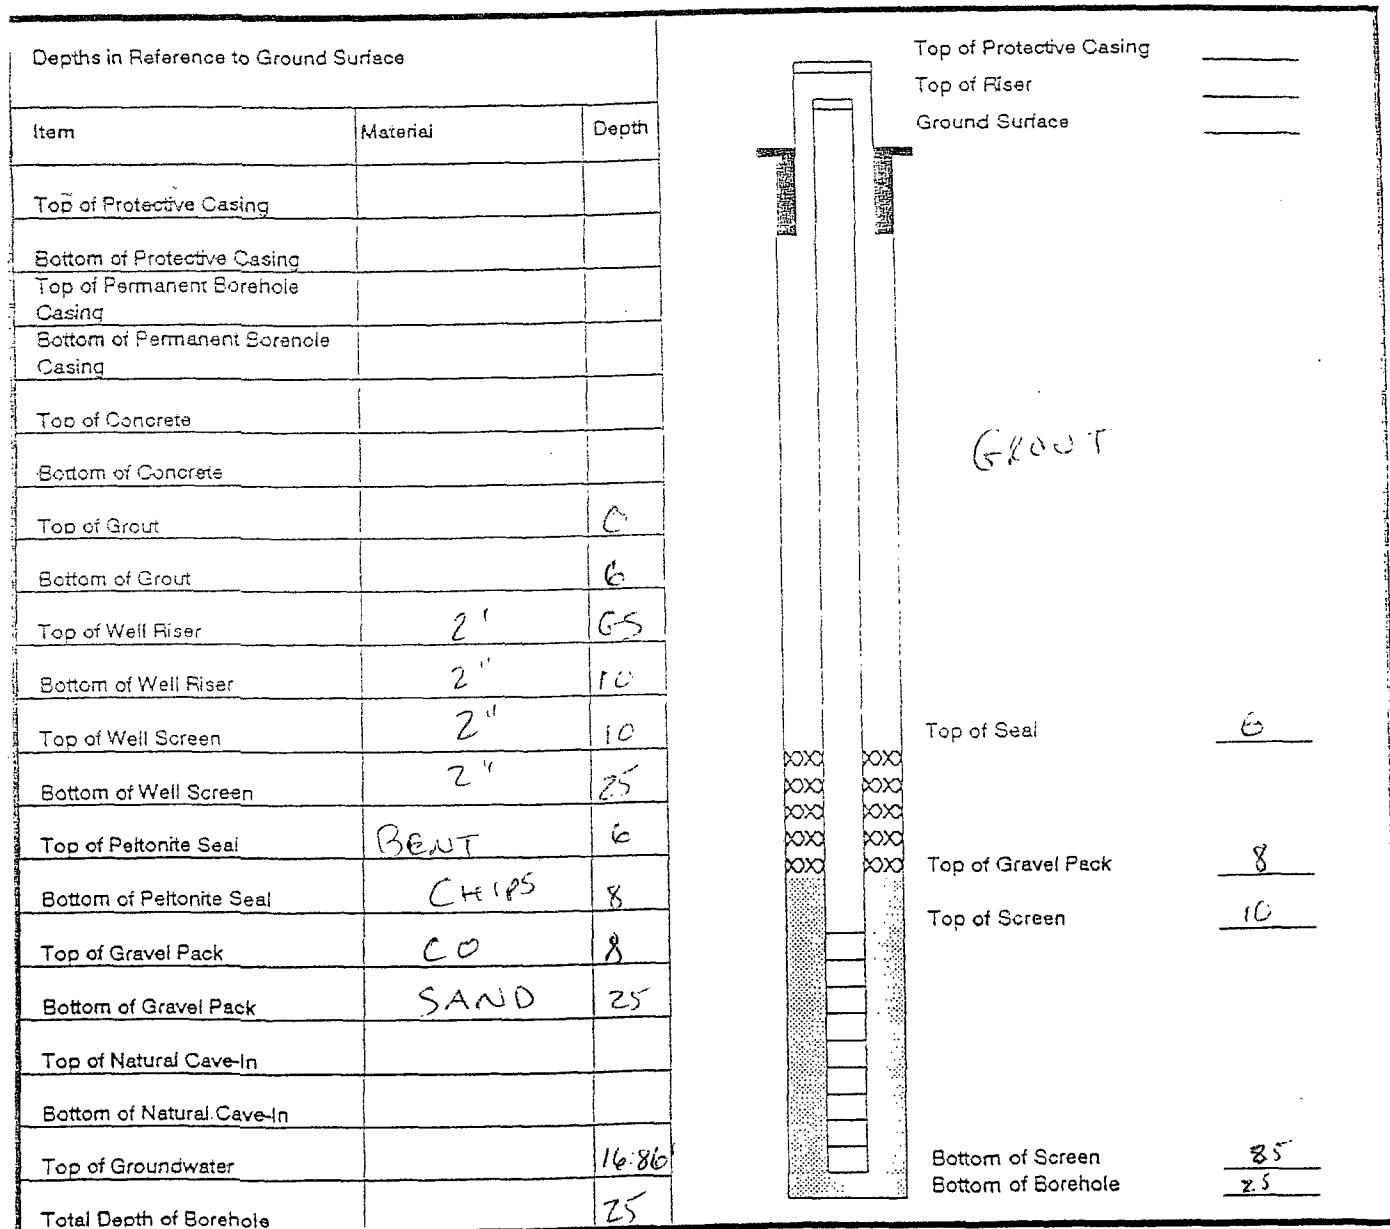 Depths in Reference to Ground Surface
Item Material Depth
Top of Protective Casing
Bottom of Protective Casing
Top of Permanent Borehole
Casing
Bottom of Permanent Borehole
Casing
Top of Concrete
Bottom of Concrete
Top of Grout 0
Bottom of Grout 6
Top of Well Riser 2' GS
Bottom of Well Riser 2" 10
Top of Well Screen 2" 10
Bottom of Well Screen 2" 25
Top of Peltonite Seal BENT 6
Bottom of Peltonite Seal CHIPS 8
Top of Gravel Pack CO 8
Bottom of Gravel Pack SAND 25
Top of Natural Cave-In
Bottom of Natural Cave-In
Top of Groundwater 16.86
Total Depth of Borehole 25
Top of Protective Casing
Top of Riser
Ground Surface
GROUT
Top of Seal 6
Top of Gravel Pack 8
Top of Screen 10
Bottom of Screen 25
Bottom of Borehole 25